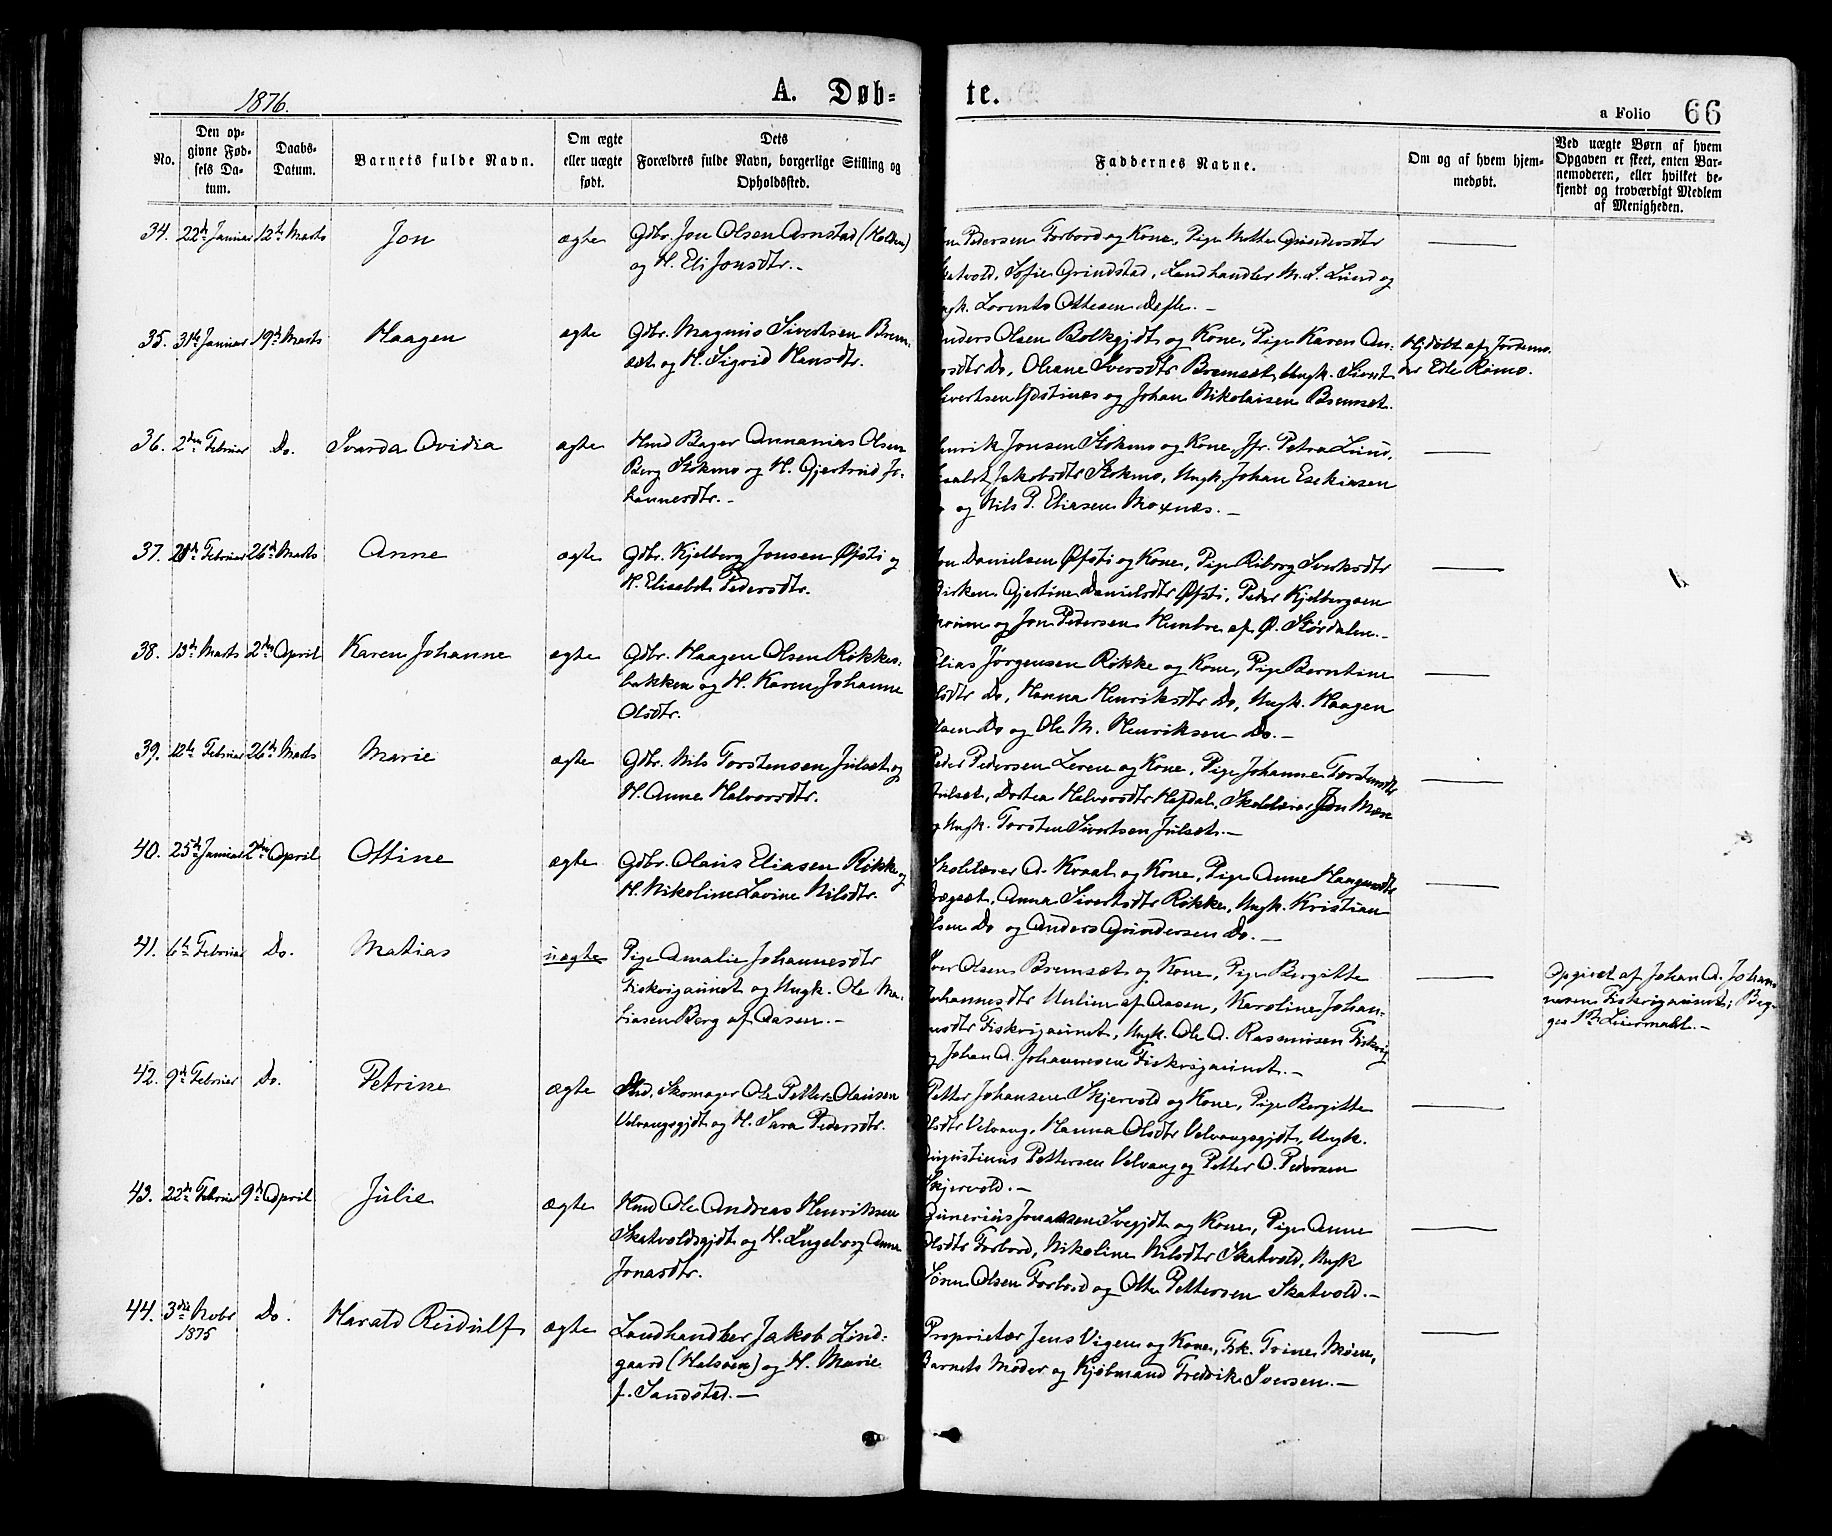 1876.
A. Døb-
te.
a Folio 66
No.
Den op-
givne Fød-
sels Da-
tum.
Daabs-
Datum.
Barnets fulde Navn.
Om ægte
eller uægte
født.
Dets
Forældres fulde Navn, borgerlige Stilling og
Opholdssted.
Faddernes Navne.
Om og af hvem hjem-
medøbt.
Ved uægte Børn af hvem
Opgaven er skeet, enten Bar-
nemoderen, eller hvilket be-
kjendt og troværdigt Medlem
af Menigheden.
34. 22de Januar 12te Marts Jon ægte
Gdbr. Jon Olsen Arnstad (Holden)
og H. Eli Jonsdtr. -
Pedersen Forbord og Kone, Pige Mette
Skatvold, Sofie Grindstad, Landhandler M. Lund og
Ungk. Lorents Ottesen Defle. -
35. 31te Januar 19de Marts Haagen ægte
Gdbr. Magnus Sivertsen Brem-
set og H. Sigrid Hansdtr.
Anders Olsen Bolkgjdt og Kone, Pige Karen An-
dersdtr Do, Oleane Iversdtr Bremset, Ungk. Sivert
Sivertsen og Johan Nikolaisen Bremset.
Hjdøbt af Jordemo-
der Edle Rømo.
36. 2den Februar Do. Svarda Ovidia ægte
Hmd Bager Annanias Olsen
Berg Stokmo og H. Gjertrud Jo-
hannesdtr. -
Henrik Jonsen Stokmo og Kone, Jfr. Petra Lund,
Jakobsdtr Stokmo, Ungk. Johan Esekiasen
og Nils P. Eliasen Moxnæs. -
37. Februar 26de Marts Anne ægte
Gdbr. Kjelberg Jonsen Øfsti og
H. Elisabet Pedersdtr.
Jon Danielsen Øfsti og Kone, Pige Riborg Sverksdtr
Birken, Gjertine Danielsdtr Øfsti, Peder Kjelbergsen
og Jon Pedersen Hembre af Ø. Størdalen. -
38. 13de Marts 2den April Karen Johanne ægte
Gdbr. Haagen Olsen Røkkes-
bakken og H. Karen Johanne
Olsdtr.
Elias Jørgensen Røkke og Kone, Pige Berntine
Olsdtr Do, Hanna Henriksdtr Do, Ungk. Haagen
Olsen Do og Ole M. Henriksen Do. -
39. 12te Februar 26de Marts Marie ægte
Gdbr. Nils Torstensen Julset og
H. Anne Halvorsdtr.
Peder Pedersen Leren og Kone, Pige Johanne Torstensdtr
Julset, Dortea Halvorsdtr Hofdal, Skolelærer Jon Moen
og Ungk. Torsten Sivertsen Julset. -
40. 25de Januar 2den April Ottine ægte
Gdbr. Olaus Eliasen Røkke og
H. Nikoline Lavine Nilsdtr.
Skolelærer A. Kvaal og Kone, Pige Anne Haagensdtr
Anna Sivertsdtr Røkke, Ungk. Kristian
Olsen Do og Anders Gundersen Do. -
41. 6te Februar Do. Matias uægte
Pige Amalie Johannesdtr
Fiskvigaunet og Ungk. Ole Ma-
tiasen Berg af Aasen. -
Iver Olsen Bremset og Kone, Pige Bergitte
Johannesdtr Hulien af Aasen, Karoline Johan-
nesdtr Fiskvigaunet, Ungk. Ole A. Rasmusen Fiskvig
og Johan A. Johannesen Fiskvigaunet. -
Opgivet af Johan A. Johan-
nesen Fiskvigaunet; Beg-
ges 1ste Leiermaal. -
42. 9de Februar Do. Petrine ægte
Skomager Ole Petter Olausen
Velvangsgjdt og H. Sara Pedersdtr.
Petter Johansen Skjervold og Kone, Pige Bergitte
Olsdtr Velvang, Hanna Olsdtr Velvangsgjdt, Ungk.
Augustinus Pettersen Velvang og Petter O. Pedersen
Skjervold. -
43. 22de Februar 9de April Julie ægte
Hmd Ole Andreas Henriksen
Skatvoldsgjdt og H. Ingeborg Anna
Jonasdtr.
Gunerius Jonassen Svegjdt og Kone, Pige Anne
Olsdtr Forbord, Nikoline Nilsdtr Skatvold, Ungk
Søren Olsen Forbord og Otto Pettersen Skatvold. -
44. 3die Novbr
1875
Do. Harald Reidulf ægte
Landhandler Jakob Lind-
gaard (Halsøen) og H. Marie
f. Sandstad. -
Proprietær Jens Vigen og Kone, Frk. Trine Moen,
Barnets Moder og Kjøbmand Fredrik Iversen. -